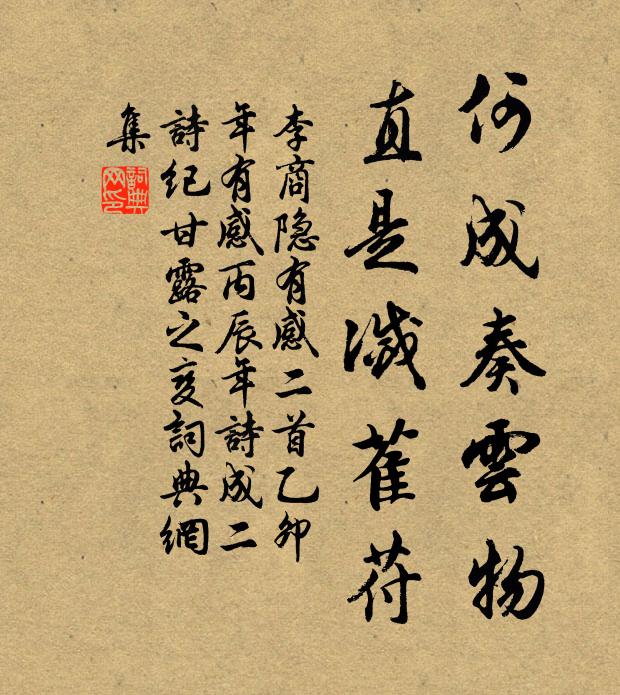 何成奏雲物
直是滅萑苻
李商隐有感二首乙卯
年有感丙辰年詩成二
詩纪甘露之变詞典網
集
詞典
网印